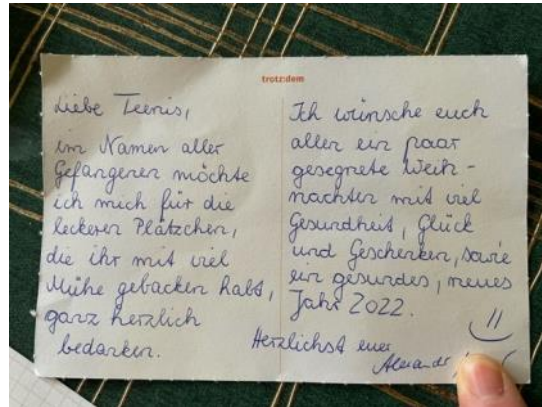 trotz:dem
Liebe Teenis,
im Namen aller
Gefangenen möchte
ich mich für die
leckeren Plätzchen,
die ihr mit viel
Mühe gebacken habt,
ganz herzlich
bedanken.
Ich wünsche euch
allen ein paar
gesegnete Weih-
nachten mit viel
Gesundheit, Glück
und Geschenken, sowie
ein gesundes, neues
Jahr 2022.
Herzlichst euer
Alexander